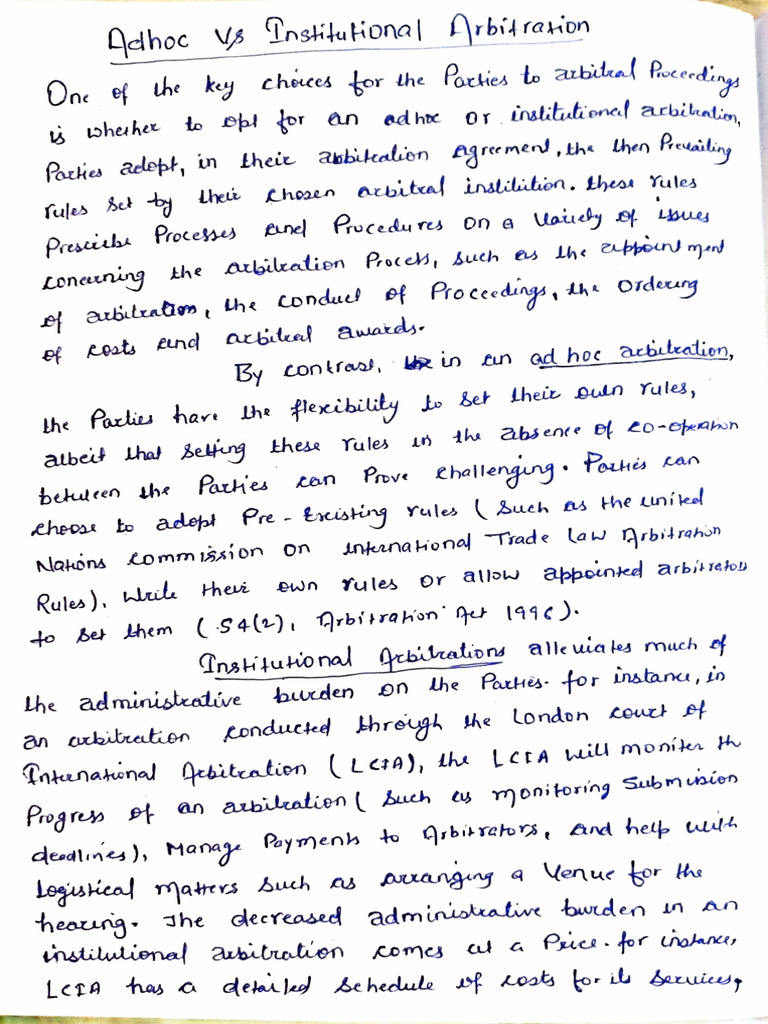 Adhoc V/s Institutional Arbitration
One of the key choices for the Parties to arbitral Proceedings
is whether to opt for an adhoc or institutional arbitration,
Parties adopt, in their arbitration agreement, the then Prevailing
rules set by their chosen arbitral institution. these rules
Prescribe Processes and Procedures on a Variety of issues
concerning the arbitration Process, such as the appointment
of arbitration, the conduct of Proceedings, the Ordering
of costs and arbitral awards.
By contrast, in an ad hoc arbitration,
the Parties have the flexibility to set their own rules,
albeit that setting these rules in the absence of co-operation
between the Parties can Prove challenging. Parties can
choose to adopt Pre-Existing rules (such as the united
Nations commission on international Trade Law Arbitration
Rules), write their own rules or allow appointed arbitrators
to set them (S4(2), Arbitration Act 1996).
Institutional Arbitrations alleviates much of
the administrative burden on the Parties. for instance, in
an arbitration conducted through the London court of
International Arbitration (LCIA), the LCIA will moniter th
Progress of an arbitration (such as monitoring submission
deadlines), Manage Payments to Arbitrators, and help with
logistical matters such as arranging a Venue for the
hearing. The decreased administrative burden in an
institutional arbitration comes at a Price. for instance,
LCIA has a detailed schedule of costs for its services,